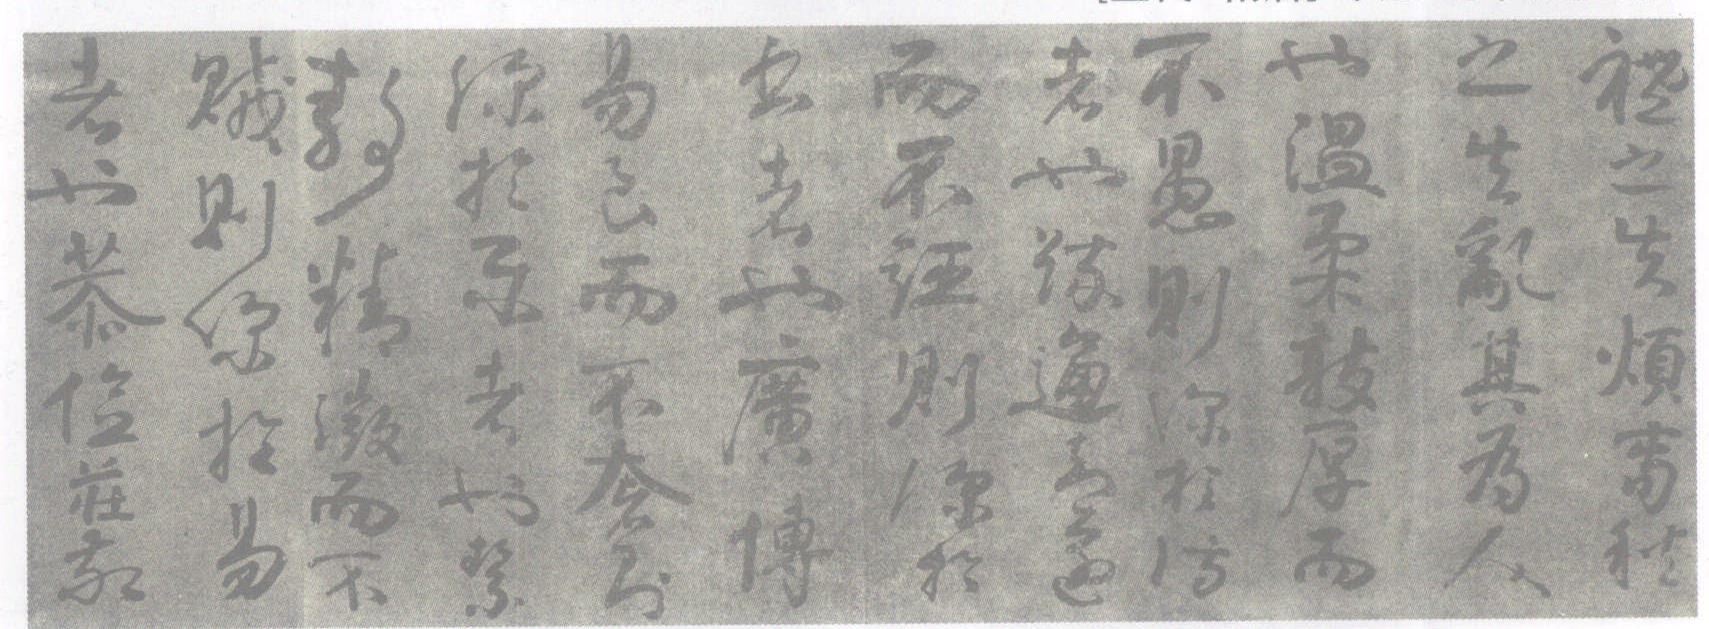 禮之失煩春秋
之失亂其為人
也溫柔敦厚而
不愚則深於詩
者也疏通知遠
而不誣則深於
書者也廣博
易良而不奢則
深於樂者也絜
靜精微而不
賊則深於易
者也恭儉莊敬